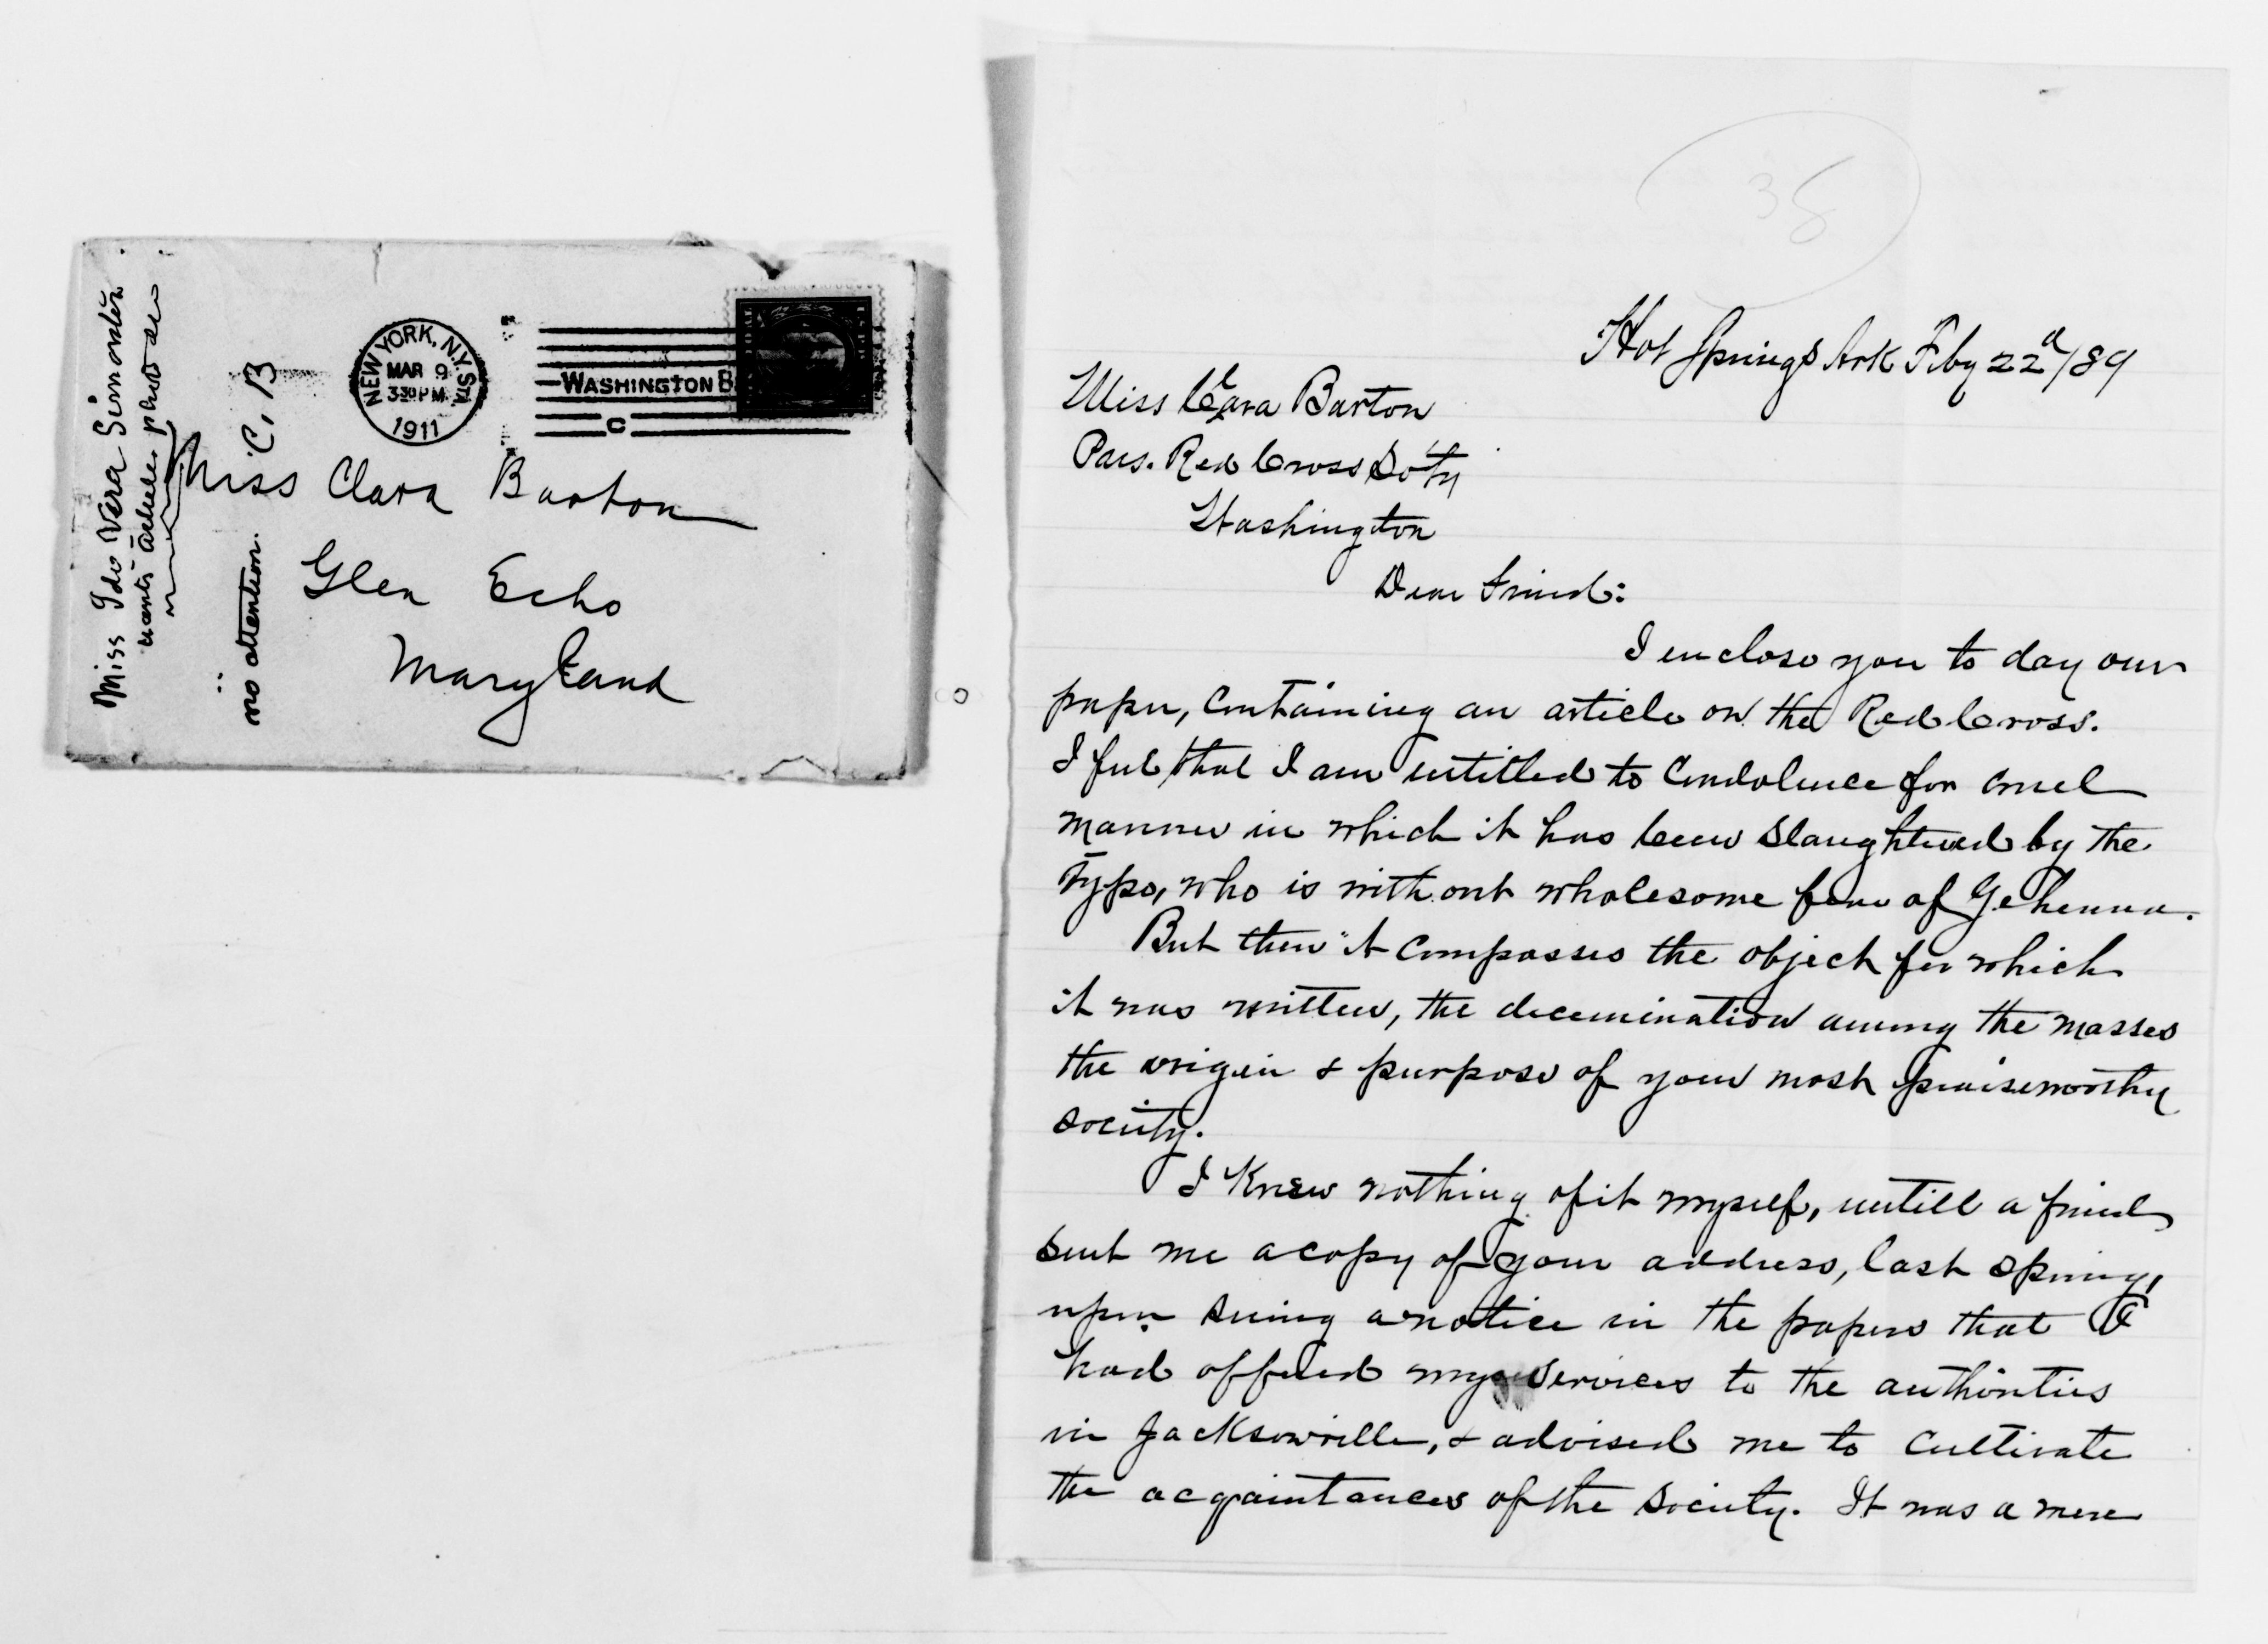 Miss Ida Vera Simonton
wants articles photo
C. B
no attention.
NEW YORK, N.Y. STA.
MAR 9
3 30 PM
1911
WASHINGTON B
C
Miss Clara Barton
Glen Echo
Maryland
38
Hot Springs Ark Feby 22d/89
Miss Clara Barton
Pres. Red Cross Soty
Washington
Dear Friend:
I enclose you to day our
paper, containing an article on the Red Cross.
I feel that I am entitled to Condolence for cruel
manner in which it has been slaughtered by the
Typo, who is without wholesome fear of Gehenna.
But then it compasses the object for which
it was written, the decemination among the masses
the origin & purpose of your most praiseworthy
society.
I Knew nothing of it myself, untill a friend
sent me a copy of your address, last spring,
upon seeing a notice in the papers that I
had offered my services to the authorities
in Jacksonville, & advised me to cultivate
the acquaintances of the society. It was a mere